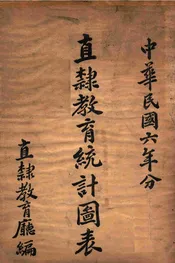 中華民國六年分
直隸教育統計圖表
直隸教育廳編